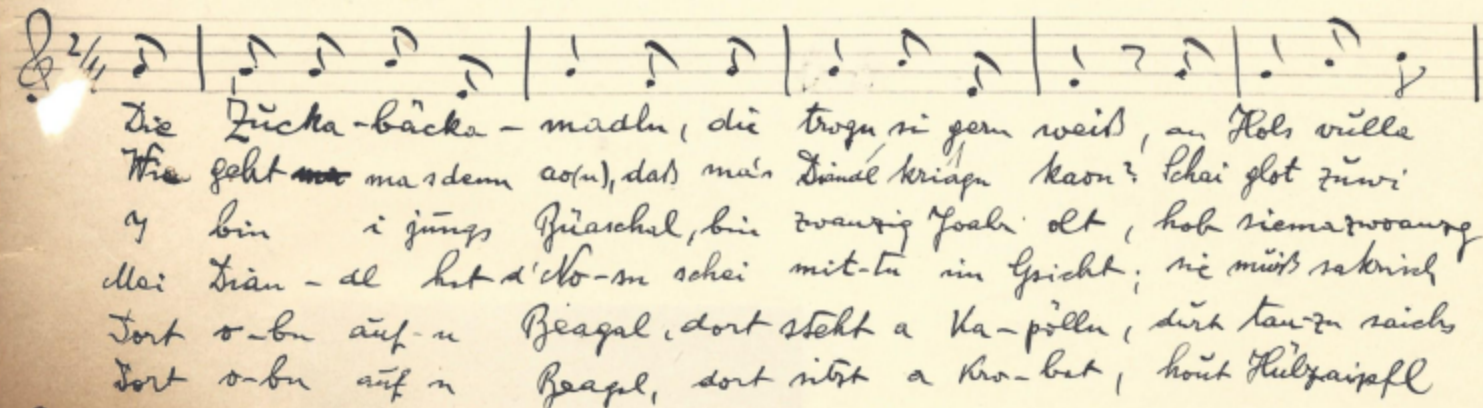 2/4
Die Zucka-bäcka-madln, die trogn si gern weiß, an Hols vulla
Wie geht ma sdenn ao(n), daß ma's Diandl kriagn kaon? Schai glot zuwi
I bin i jungs Büaschal, bin zwanzig Joahr olt, hob siema zwoanzg
Mei Dian-dl hot d'No-sn schei mit-tn im Gsicht; sie muiß sakrisch
Dort o-bn auf-n Beagal, dort steht a Ka-pölln, durt tan-zn
Dort o-bn auf n Beagal, dort sitzt a Kro-bat, hout